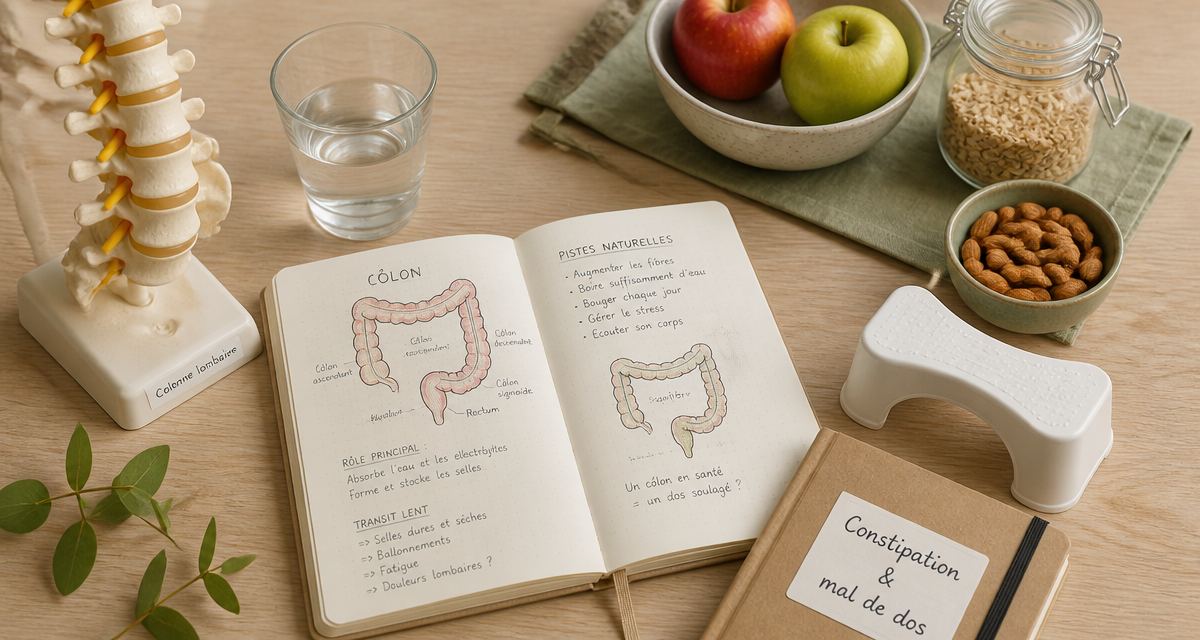 Colonne lombaire
CÔLON
Côlon
ascendant
Côlon
Côlon
descendant
Côlon
sigmoïde
Rectum
RÔLE PRINCIPAL :
Absorbe l'eau et les electrolytes
Forme et stocke les selles
TRANSIT LENT
=> Selles dures et sèches
=> Ballonnements
=> Fatigue
=> Douleurs lombaires ?
PISTES NATURELLES
- Augmenter les fibres
- Boire suffisamment d'eau
- Bouger chaque jour
- Gérer le stress
- Ecouter son corps
Un côlon en santé
= un dos soulagé ?
Constipation
&
mal de dos